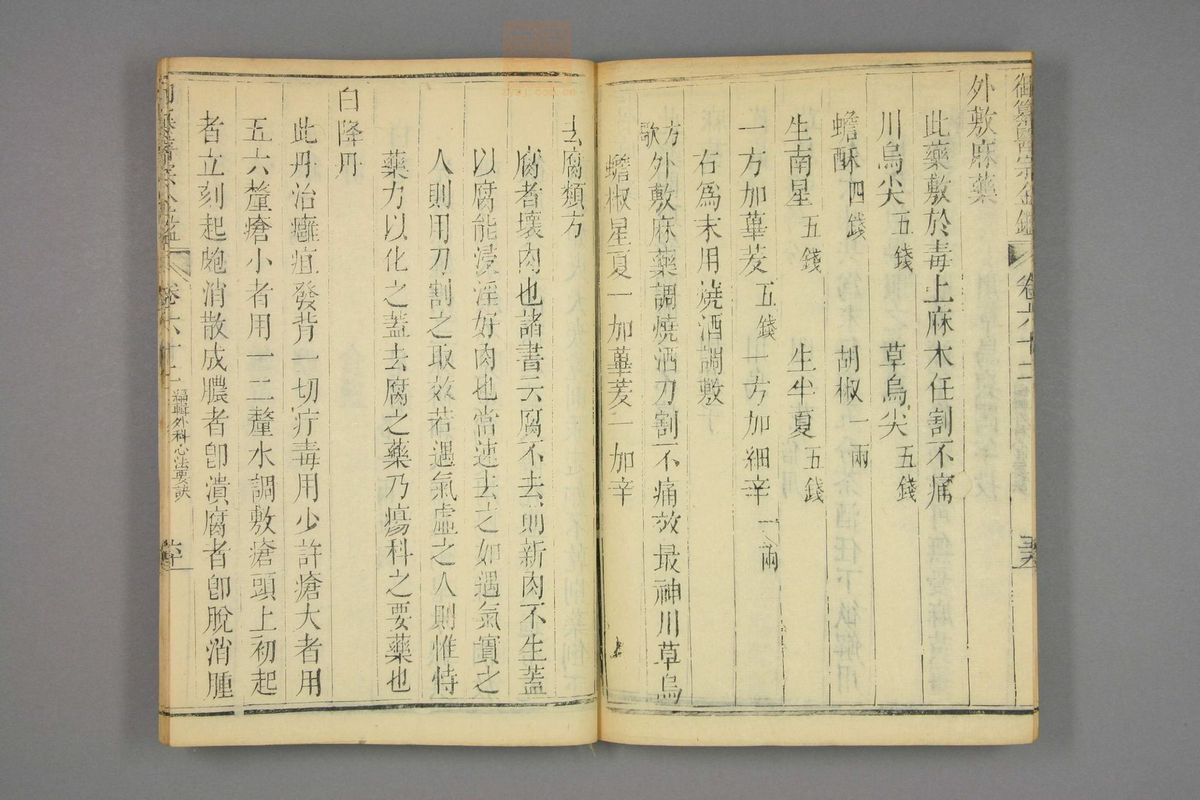 御纂醫宗金鑑 卷六十二
外敷麻藥
此藥敷於毒上麻木任割不痛
川烏尖五錢 草烏尖五錢
蟾酥四錢 胡椒一兩
生南星五錢 生半夏五錢
一方加蓽茇五錢 一方加細辛一兩
右爲末用燒酒調敷
方歌 外敷麻藥調燒酒刀割不痛效最神川草烏
蟾椒星夏一加蓽茇一加辛
去腐類方
腐者壞肉也諸書云腐不去則新肉不生蓋
以腐能浸淫好肉也當速去之如遇氣實之
人則用刀割之取效若遇氣虛之人則惟恃
藥力以化之蓋去腐之藥乃瘍科之要藥也
白降丹
此丹治癰疽發背一切疔毒用少許瘡大者用
五六釐瘡小者用一二釐水調敷瘡頭上初起
者立刻起皰消散成膿者卽潰腐者卽脫消腫
御纂醫宗金鑑 卷六十二 編輯外科心法要訣